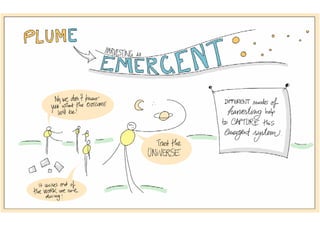 PLUME
HARVESTING is
EMERGENT
No, we don't know
yet what the outcome
will be!
it arises out of
the work we are
doing!
Trust the
UNIVERSE
DIFFERENT modes of
harvesting help
to CAPTURE this
emergent system!